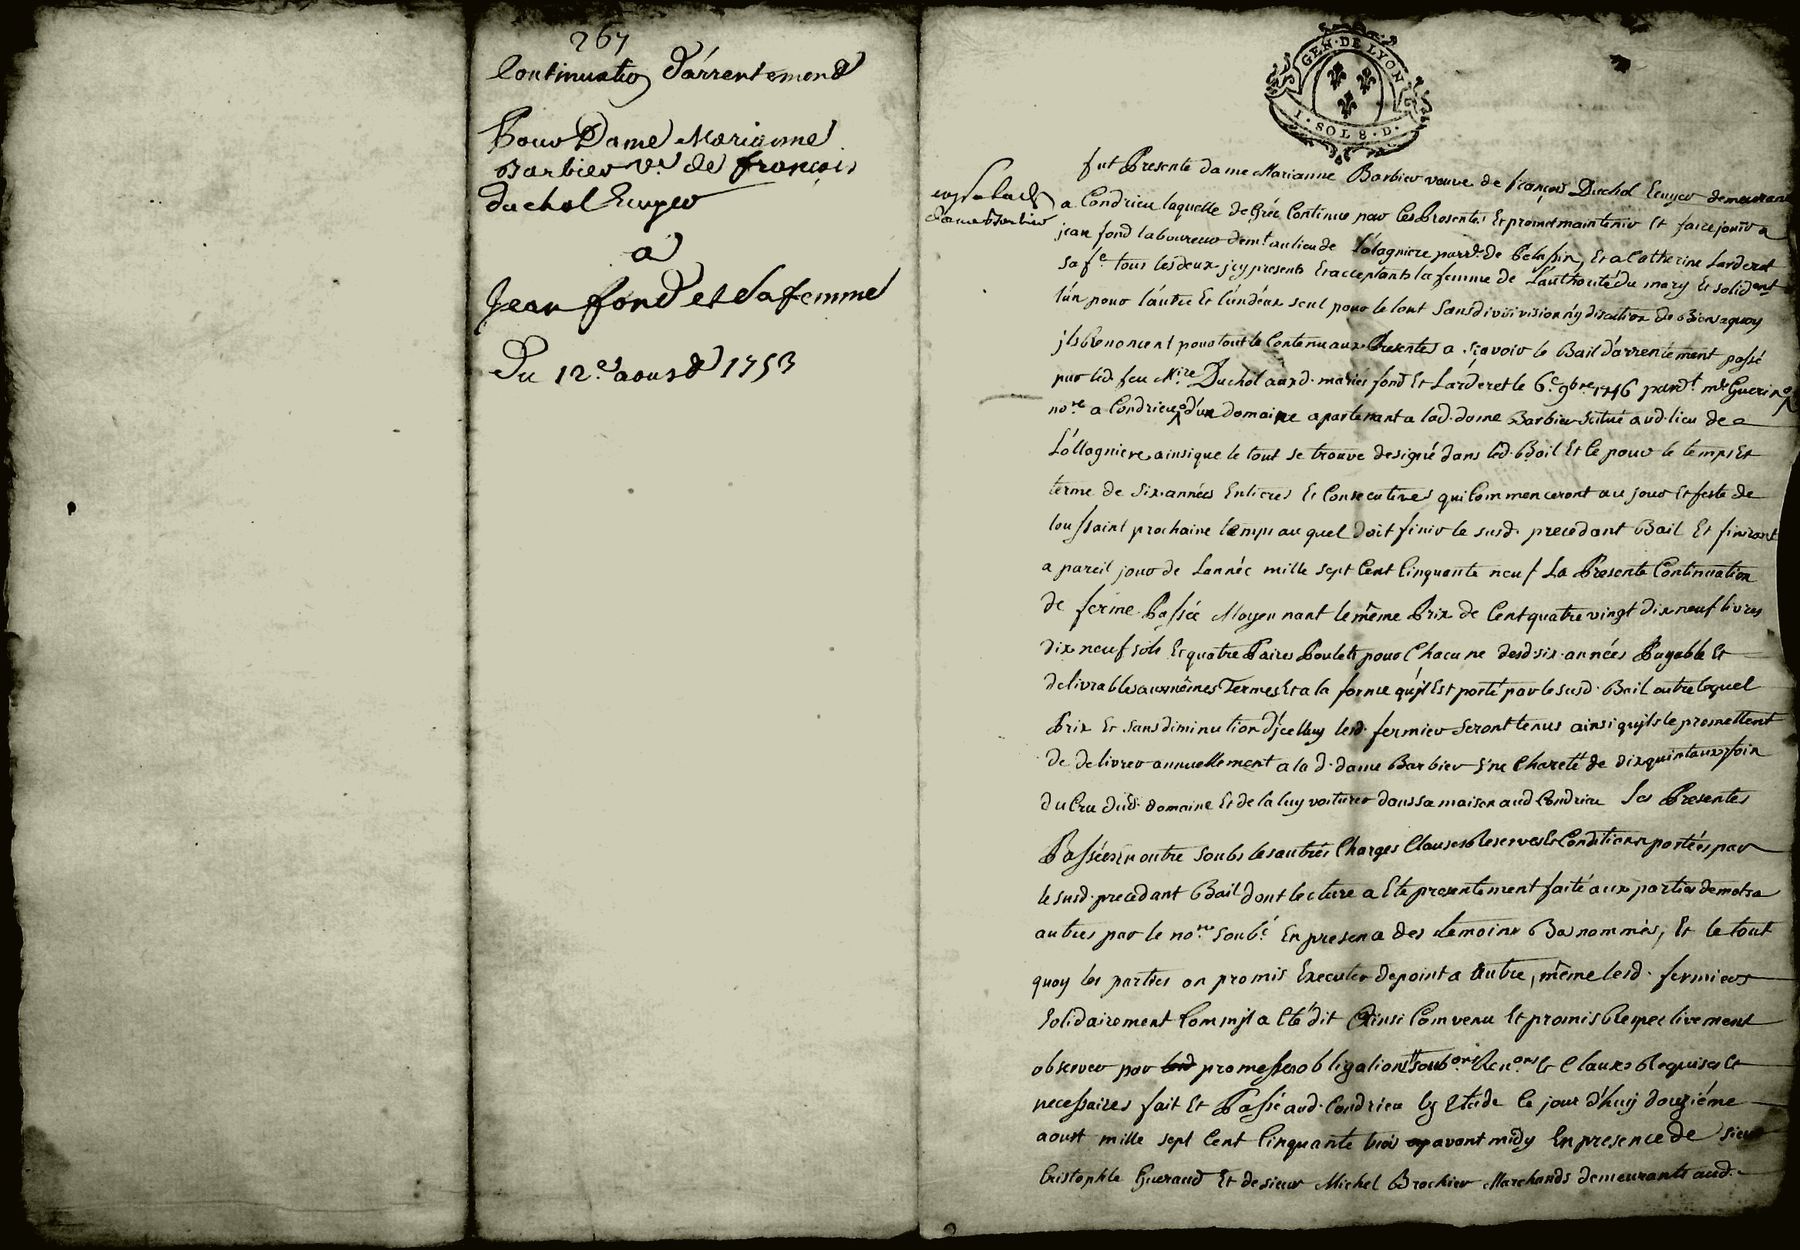 267
Continuatio d'arrentement
Pour Dame Marianne
Barbier ve. de françois
duchol Ecuyer
a
Jean fond et sa femme
Du 12e. aoust 1753
GEN·DE LYON
I·SOL 8·D·
fut Presente dame Marianne Barbier veuve de françois Duchol Ecuyer demeurant
a Condrieu laquelle de Gré Continue par les Presentes Et promet maintenir Et faire jouir a
jean fond laboureur demt. au lieu de L'olagniere parr. de Pelussin, Et a Catherine Larderet
sa fe. tous les deux jcy presents Et acceptants la femme de L'authorité du mary Et solident
l'un pour l'autre Et l'un d'eux seul pour le tout sans division ny discution de Biens a quoy
jls Renoncent pour tout le Contenu aux Presentes a sçavoir le Bail d'arrentement passé
par led. feu Mire. Duchol auxd. mariés fond Et Larderet le 6e. 9bre. 1746 pardt. me Guerin
nore. a Condrieu d'un domaine apartenant a lad. dame Barbier scitué aud. lieu de
L'ollagniere ainsi que le tout se trouve designé dans led. Bail Et ce pour le temps Et
terme de six années Entieres Et Consecutives qui Commenceront au jour Et feste de
toussaint prochaine temps auquel doit finir le susd. precedant Bail Et finiront
a pareil jour de Lannée mille sept Cent Cinquante neuf La Presente Continuation
de ferme Passée Moyennant le même Prix de Cent quatre vingt dix neuf livres
dix neuf sols Et quatre Paires Poulets pour Chacune desd. six années Payable Et
delivrables aux mêmes Termes Et a la forme qu'jl Est porté par le susd. Bail outre lequel
Prix Et sans diminution d'jcelluy lesd. fermier seront tenus ainsi qu'jls le promettent
de delivrer annuellement a lad. dame Barbier Une Charetté de dix quintaux foin
du Cru dud. domaine Et de la luy voiturer dans sa maison aud Condrieu Les Presentes
Passées En outre soubs les autres Charges Clauses Reserves Et Conditions portées par
le susd. precedant Bail dont lecture a Eté presentement faite aux parties de mot a
autres par le nore. soubé. En presence des temoins Bas nommés, Et le tout
quoy les parties on promis Executer de point a autre, même lesd. fermiers
solidairement Comm'jl a Eté dit Ainsi Convenu Et promis Respectivement
observer par promesses obligations soubons. Renons. Et Clauses Requises Et
necessaires fait Et Passé aud. Condrieu Etude Ce jour d'huy douziéme
aoust mille sept Cent Cinquante trois avant midy En presence de sieur
Cristophle Gueraud Et de sieur Michel Brochier Marchands demeurants aud.